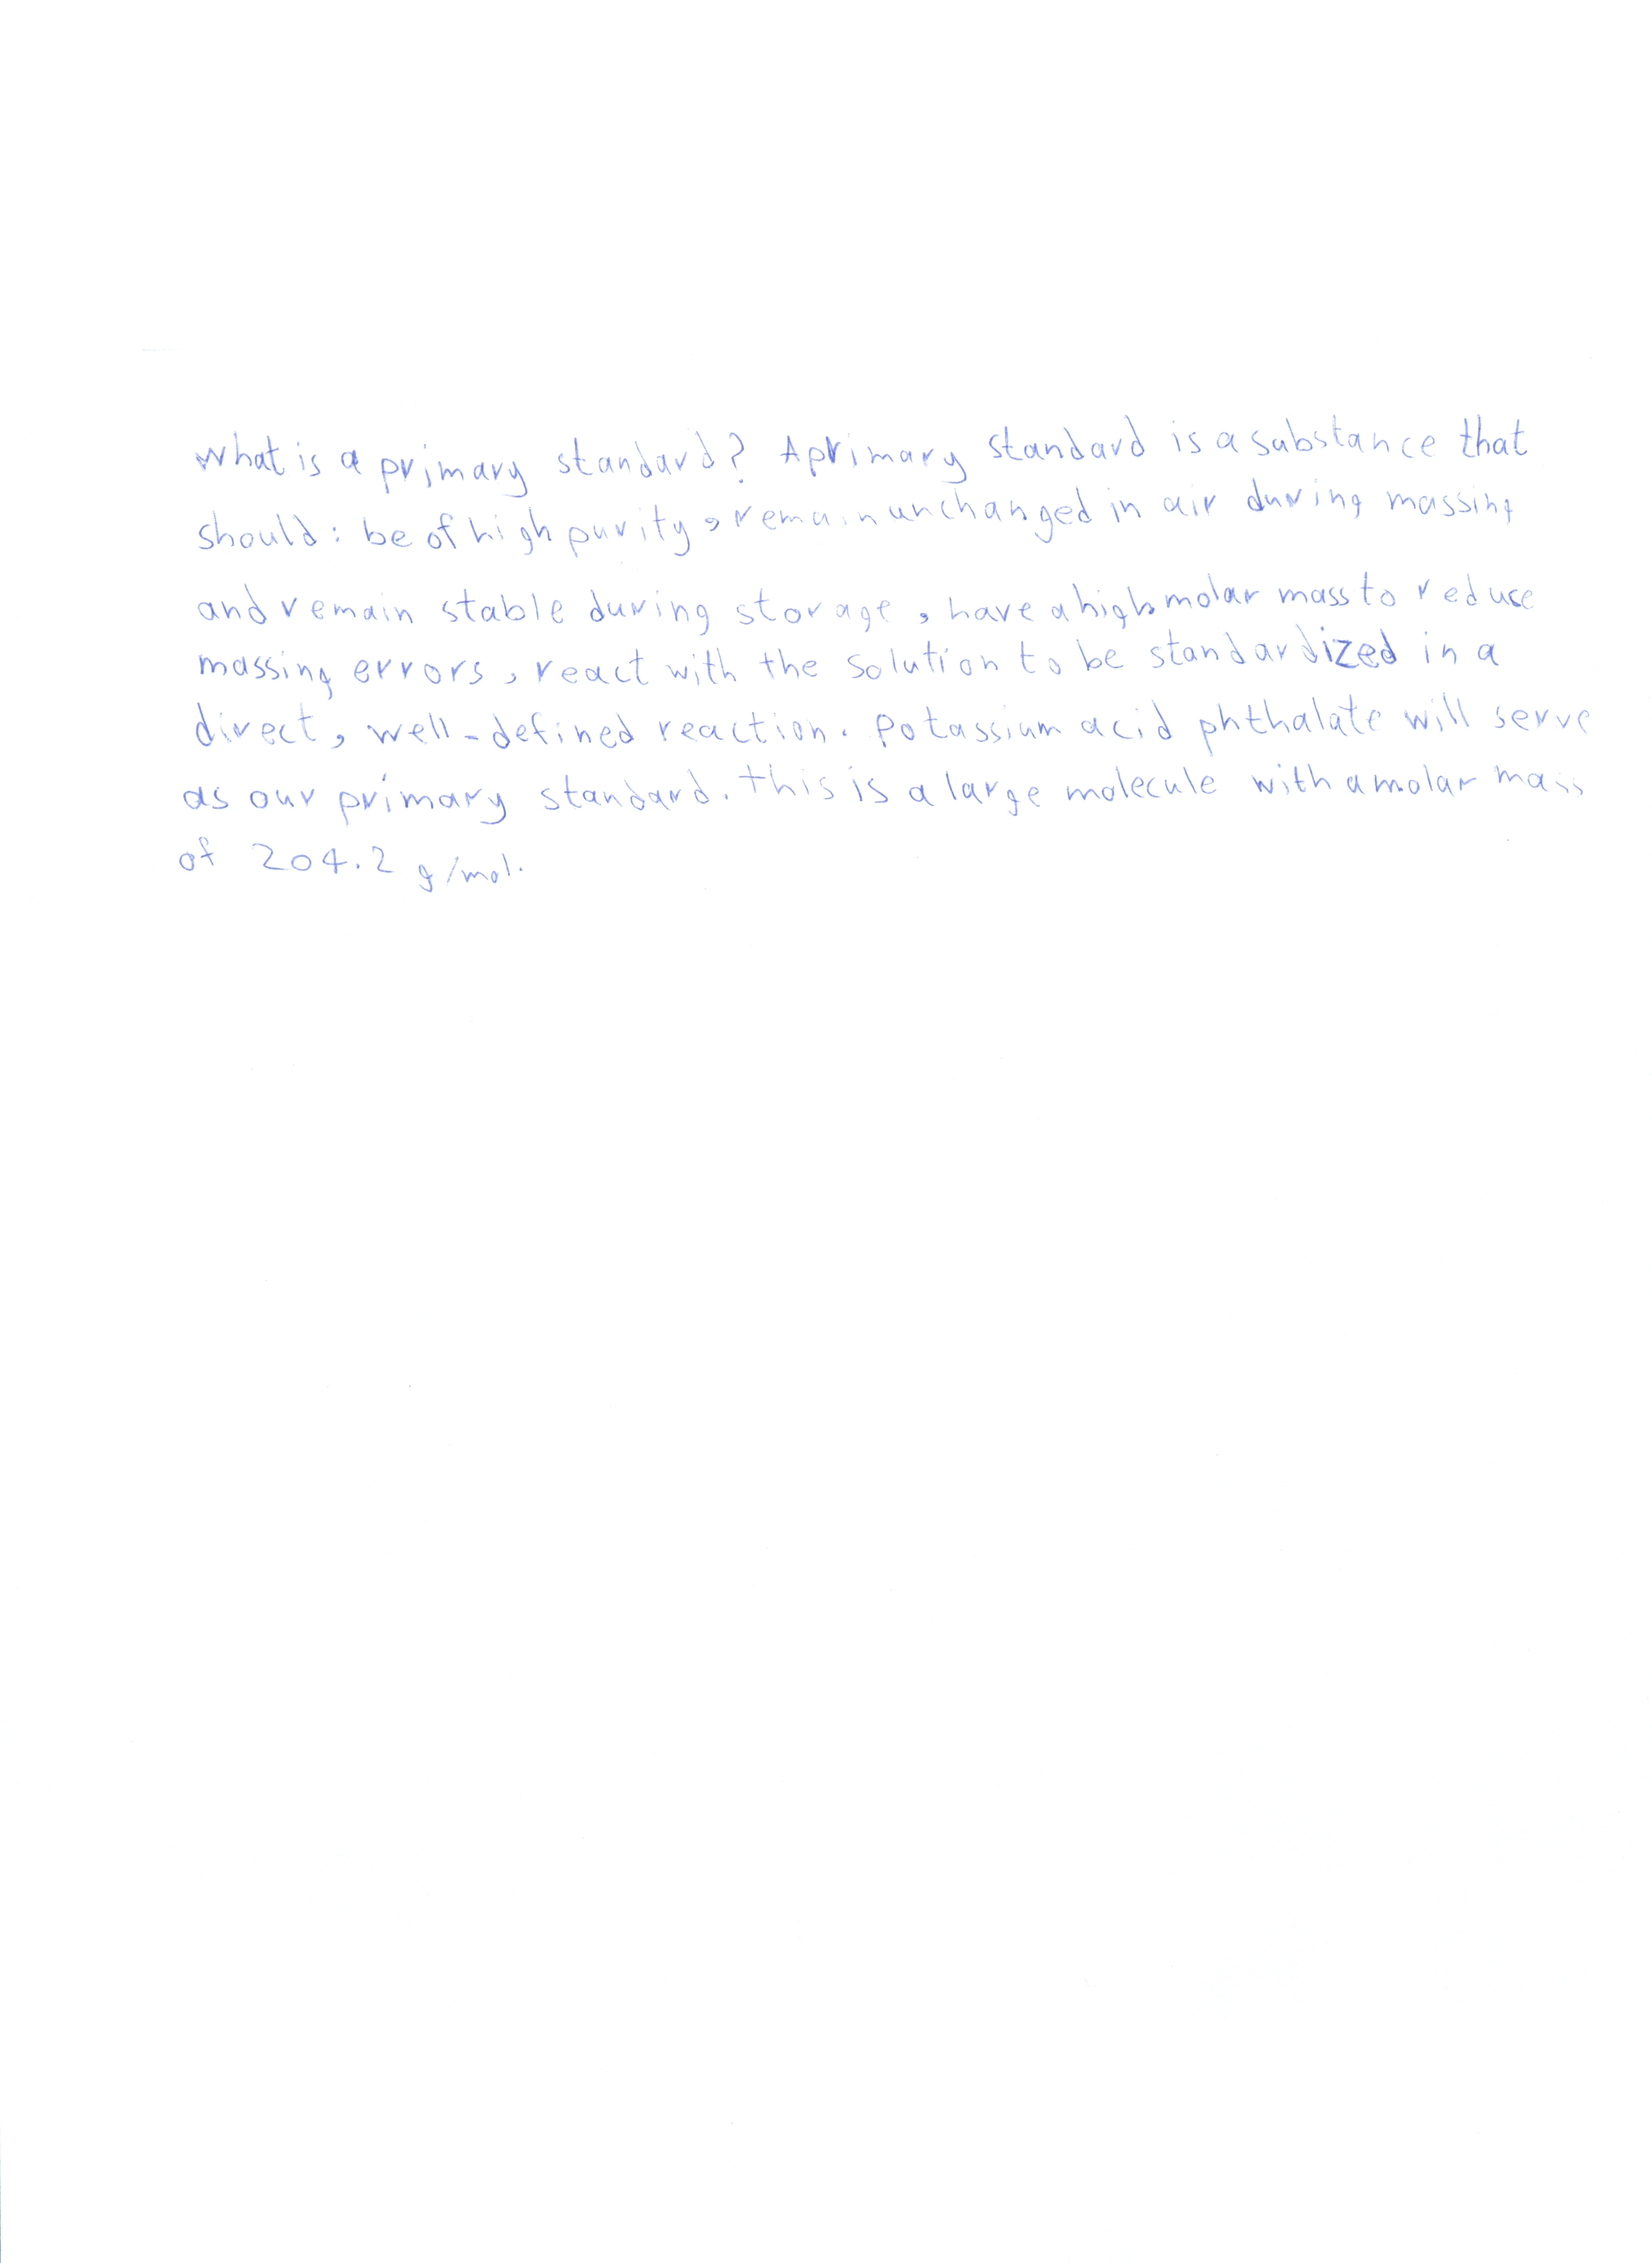 What is a primary standard? A primary standard is a substance that
should: be of high purity, remain unchanged in air during massing
and remain stable during storage, have a high molar mass to reduce
massing errors, react with the solution to be standardized in a
direct, well-defined reaction. Potassium acid phthalate will serve
as our primary standard. This is a large molecule with a molar mass
of 204.2 g/mol.